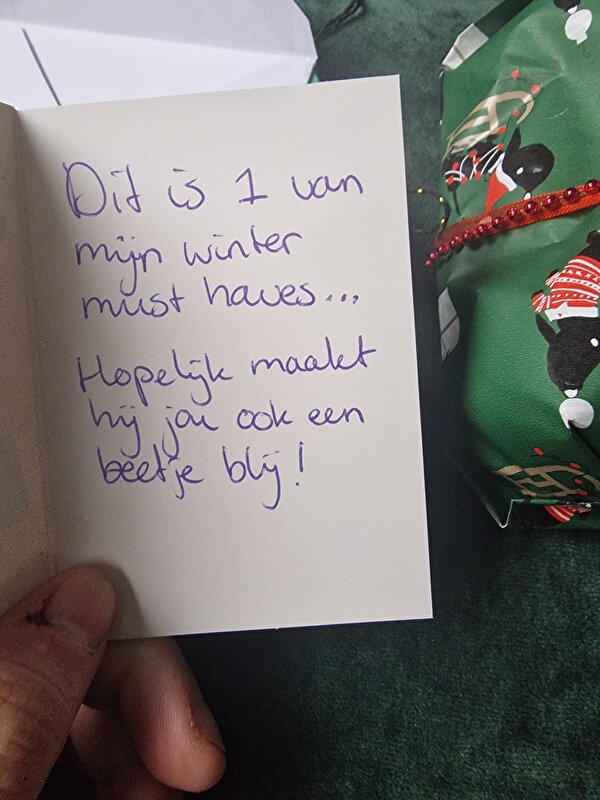 Dit is 1 van
mijn winter
must haves...
Hopelijk maakt
hij jou ook een
beetje blij!